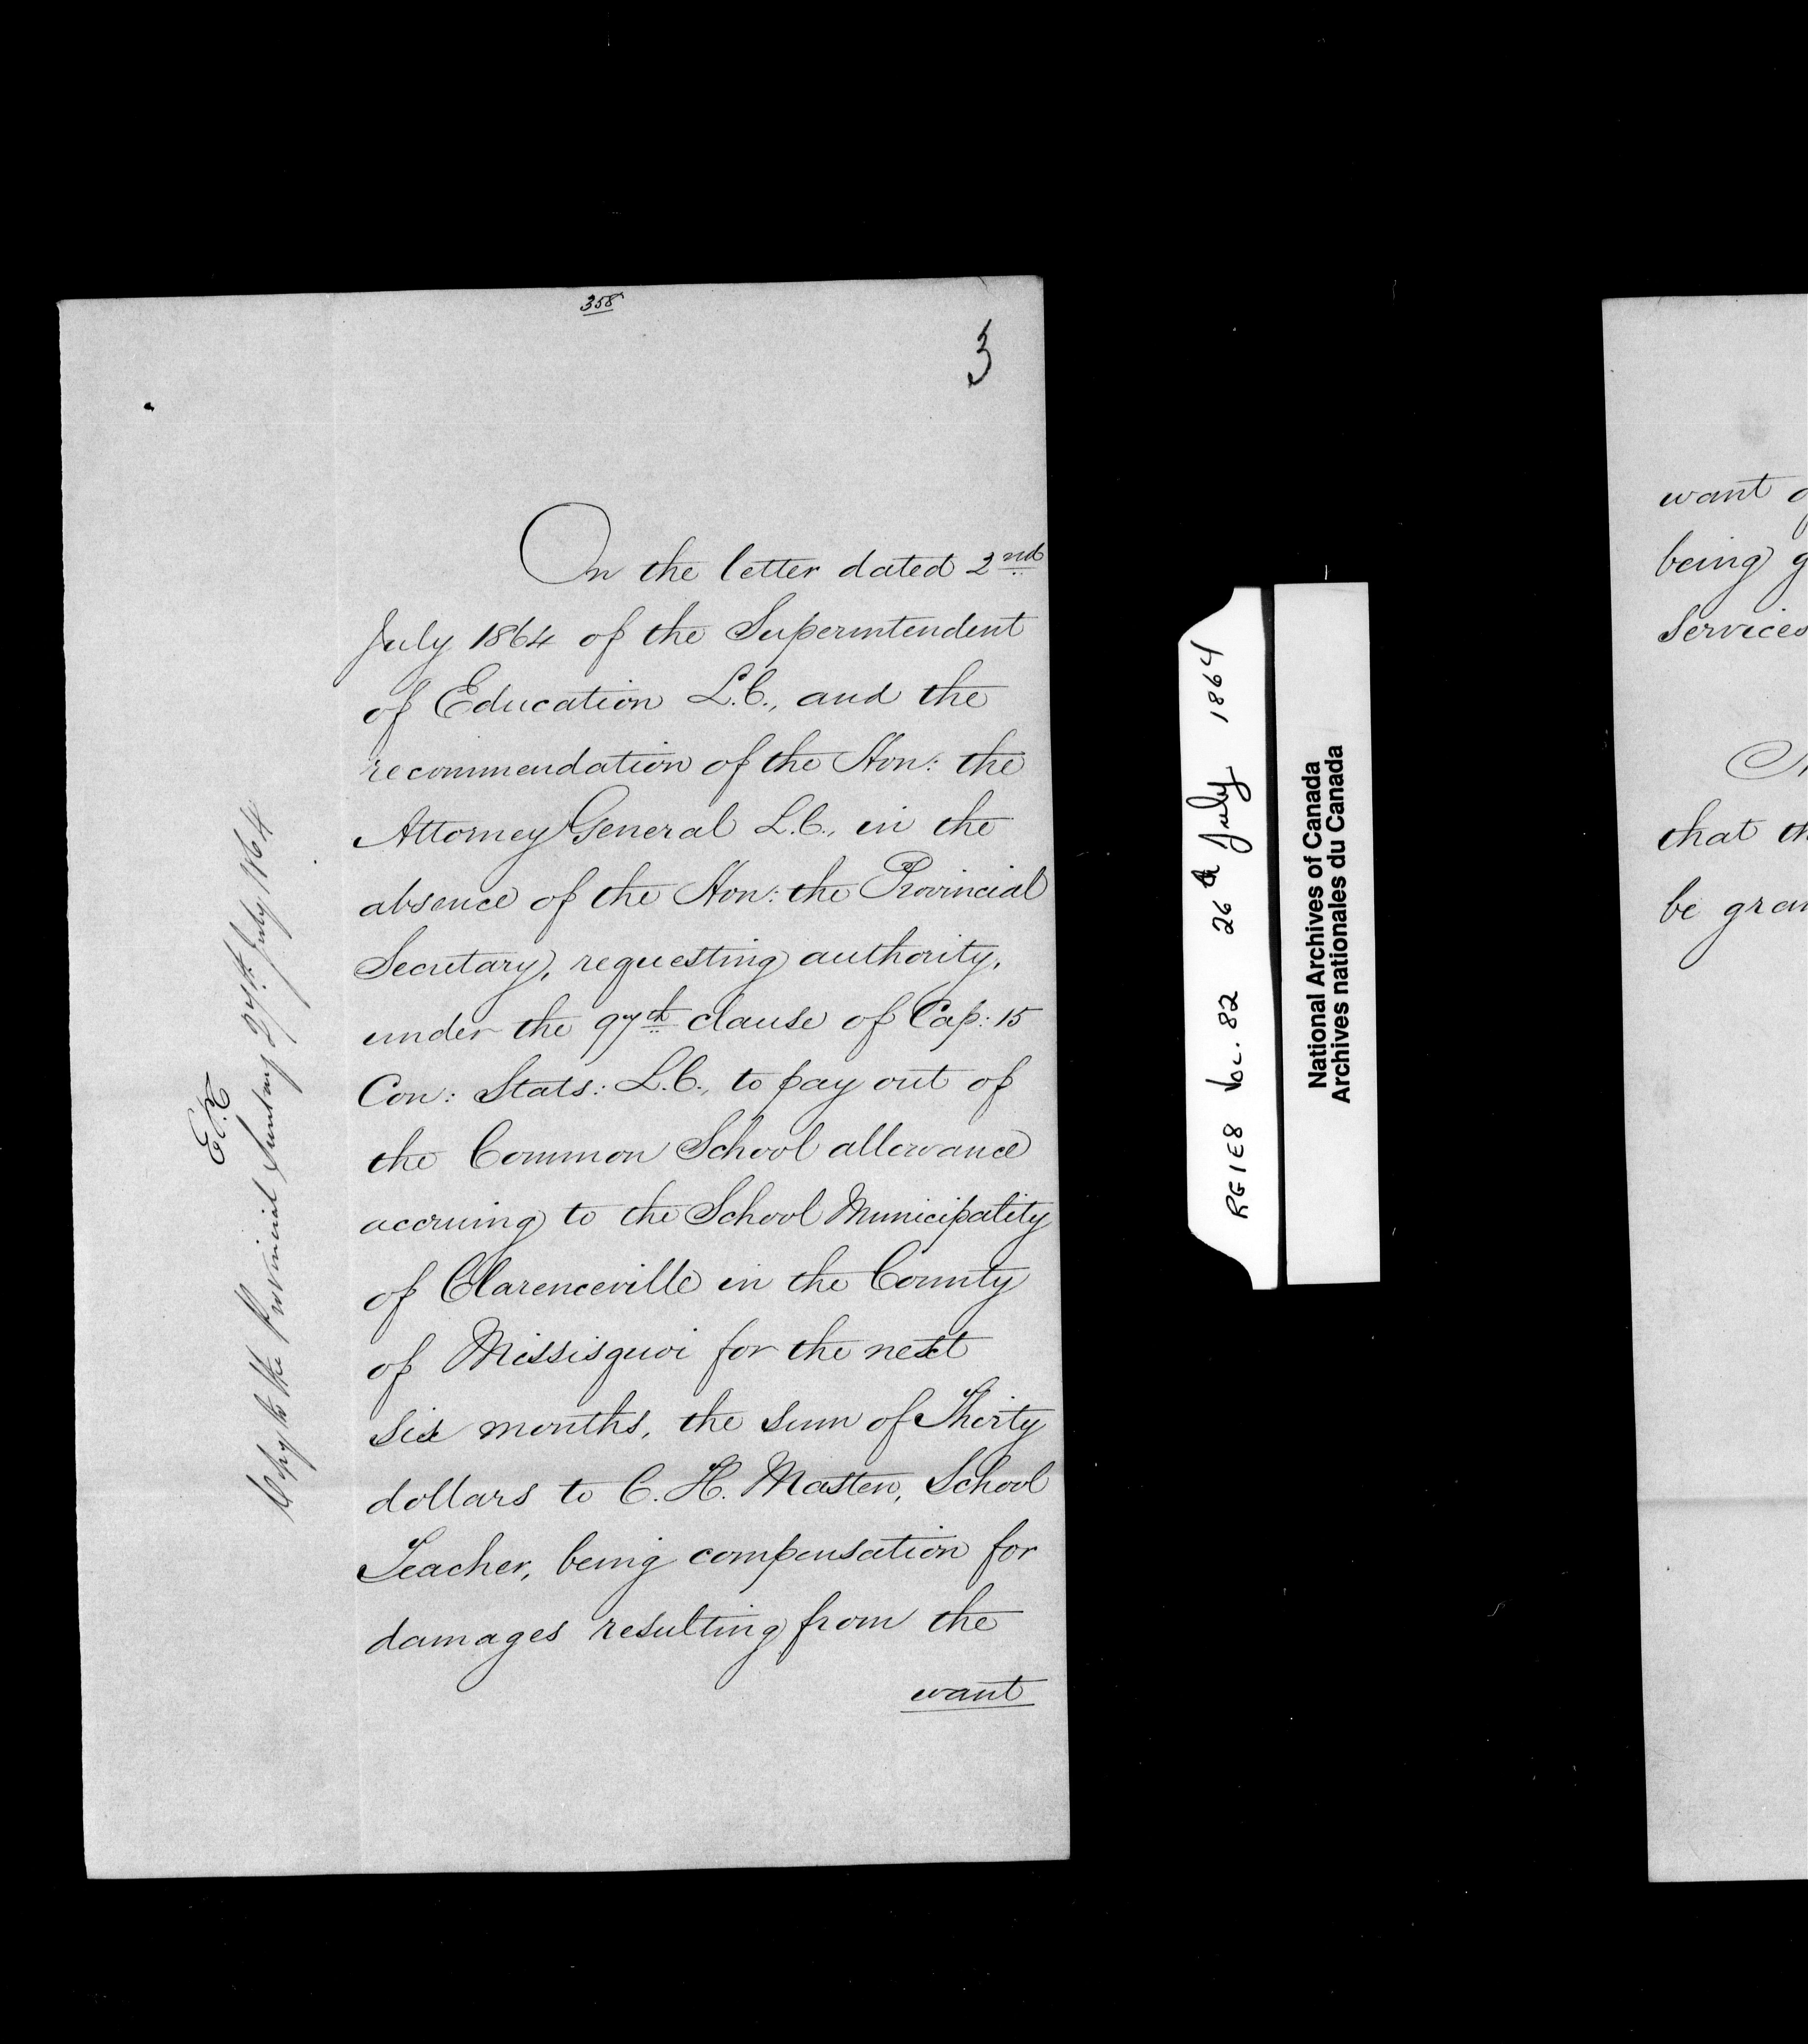 358
3
On the letter dated 2nd
July 1864 of the Superintendent
of Education L.C., and the
recommendation of the Hon: the
Attorney General L.C., in the
absence of the Hon: the Provincial
Secretary, requesting authority,
under the 97th clause of Cap: 15
Con: Stats: L.C., to pay out of
the Common School allowance
accruing to the School Municipality
of Clarenceville in the County
of Missisquoi for the next
six months, the sum of Thirty
dollars to C. H. Masten, School
Teacher, being compensation for
damages resulting from the
want
E.C.
Copy to the Provincial Secretary 27th July 1864
RG1E8 Vol. 82 26th July 1864
National Archives of Canada
Archives nationales du Canada
want
being g
Services
that th
be gran